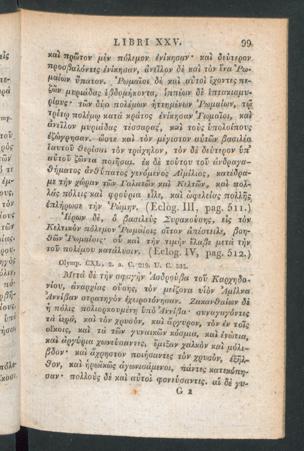 LIBRI XXV. 99
καὶ πρῶτον μὲν πόλεμον ἐνίκησαν· καὶ δεύτερον
προσβαλόντες ἐνίκησαν, ἀνεῖλον δὲ καὶ τὸν ἕνα Ῥω-
μαίων ὕπατον. Ῥωμαῖοι δὲ καὶ αὐτοὶ ἔχοντες πε-
ζῶν μυριάδας ἑβδομήκοντα, ἱππέων δὲ ἑπτακισμυ-
ρίους· τῶν δύο πολέμων ἡττημένων Ῥωμαίων, τῷ
τρίτῳ πολέμῳ κατὰ κράτος ἐνίκησαν Ῥωμαῖοι, καὶ
ἀνεῖλον μυριάδας τέσσαρας, καὶ τοὺς ὑπολοίπους
ἐζώγρησαν· ὥστε καὶ τὸν μέγιστον αὐτῶν βασιλέα
ἑαυτοῦ θερίσαι τὸν τράχηλον, τὸν δὲ δεύτερον ὑπ'
αὐτοῦ ζῶντα ποιῆσαι. ἐκ δὲ τούτου τοῦ ἀνδραγα-
θήματος ἀνθύπατος γενόμενος Αἰμίλιος, κατέδρα-
με τὴν χώραν τῶν Γαλατῶν καὶ Κελτῶν, καὶ πολ-
λὰς πόλεις καὶ φρούρια εἷλε, καὶ ὠφελείας πολλῆς
ἐπλήρωσε τὴν Ῥώμην. (Eclog. III, pag. 511.)
Ἱέρων δὲ, ὁ βασιλεὺς Συρακούσης, εἰς τὸν
Κελτικὸν πόλεμον Ῥωμαίοις σῖτον ἀπέστειλε, βοη-
θῶν Ῥωμαίοις· οὗ καὶ τὴν τιμὴν ἔλαβε μετὰ τὴν
τοῦ πολέμου κατάλυσιν. (Eclog. IV, pag. 512.)
Olymp. CXL, 2. a. C. 219. U. C. 535.
Μετὰ δὲ τὴν σφαγὴν Ἀσδρούβα τοῦ Καρχηδο-
νίου, ἀναρχίας οὔσης, τὸν μείζονα υἱὸν Ἀμίλκα
Ἀννίβαν στρατηγὸν ἐχειροτόνησαν. Ζακανθαίων δὲ
ἡ πόλις πολιορκουμένη ὑπὸ Ἀννίβα· συναγαγόντες
τὰ ἱερὰ, καὶ τὸν χρυσὸν, καὶ ἄργυρον, τὸν ἐν τοῖς
οἴκοις, καὶ τὰ τῶν γυναικῶν κόσμια, καὶ ἐνώτια,
καὶ ἀργύρια χωνεύσαντες, ἔμιξαν χαλκὸν καὶ μόλι-
βδον· καὶ ἄχρηστον ποιήσαντες τὸν χρυσὸν, ἐξῆλ-
θον, καὶ ἡρωϊκῶς ἀγωνισάμενοι, πάντες κατεκόπη-
σαν· πολλοὺς δὲ καὶ αὐτοὶ φονεύσαντες. αἱ δὲ γυ-
G 2